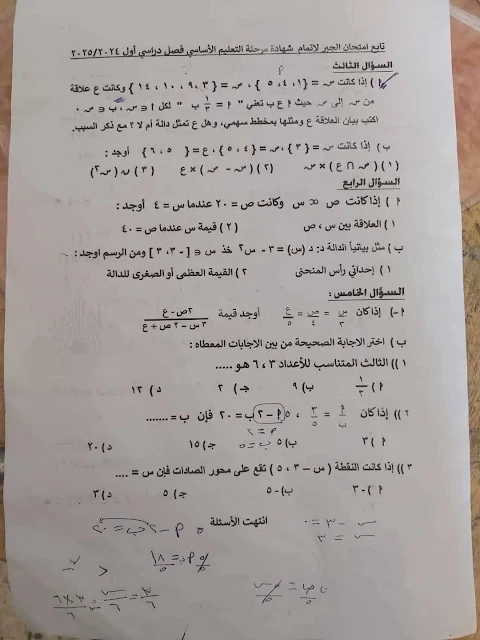 تابع امتحان الجبر لاتمام شهادة مرحلة التعليم الأساسي فصل دراسي أول ٢٠٢٥/٢٠٢٤
السؤال الثالث
أ) إذا كانت س = {١، ٤، ٥}، ص = {٣، ٩، ١٠، ١٤} وكانت ع علاقة
من س إلى ص حيث أ ع ب تعني " أ = ١/٢ ب " لكل أ ∈ س، ب ∈ ص
اكتب بيان العلاقة ع ومثلها بمخطط سهمي، وهل ع تمثل دالة أم لا ؟ مع ذكر السبب.
ب) إذا كانت س = {٣}، ص = {٤، ٥}، ع = {٥، ٦} أوجد :
(١) (ص ∩ ع) × س (٢) (س − ص) × ع (٣) ن (س٢)
السؤال الرابع
أ) إذا كانت ص ∝ س وكانت ص = ٢٠ عندما س = ٤ أوجد :
١) العلاقة بين س، ص (٢) قيمة س عندما ص = ٤٠
ب) مثل بيانياً الدالة د: د (س) = ٣ − س٢ خذ س ∈ [−٣، ٣] ومن الرسم اوجد :
١) إحداثي رأس المنحنى ٢) القيمة العظمى أو الصغرى للدالة
السؤال الخامس :
أ−) إذا كان س/٣ = ص/٤ = ع/٥ أوجد قيمة ٢ص − ع / ٣س − ٢ص + ع
ب) اختر الاجابة الصحيحة من بين الاجابات المعطاه :
١)) الثالث المتناسب للأعداد ٣، ٦ هو .....
أ) ١/٢ ب) ٩ جـ) ٢ د) ١٢
٢)) إذا كان أ/ب = ٣/٥، ٥أ − ٢ب = ٢٠ فإن ب = .......
أ) ٣ ب) ٥ جـ) ١٥ د) ٢٠
٣)) إذا كانت النقطة (س − ٣، ٥) تقع على محور الصادات فإن س = ....
أ) −٣ ب) −٥ جـ) ٥ د) ٣
انتهت الأسئلة
س − ٣ = ٠
س = ٣